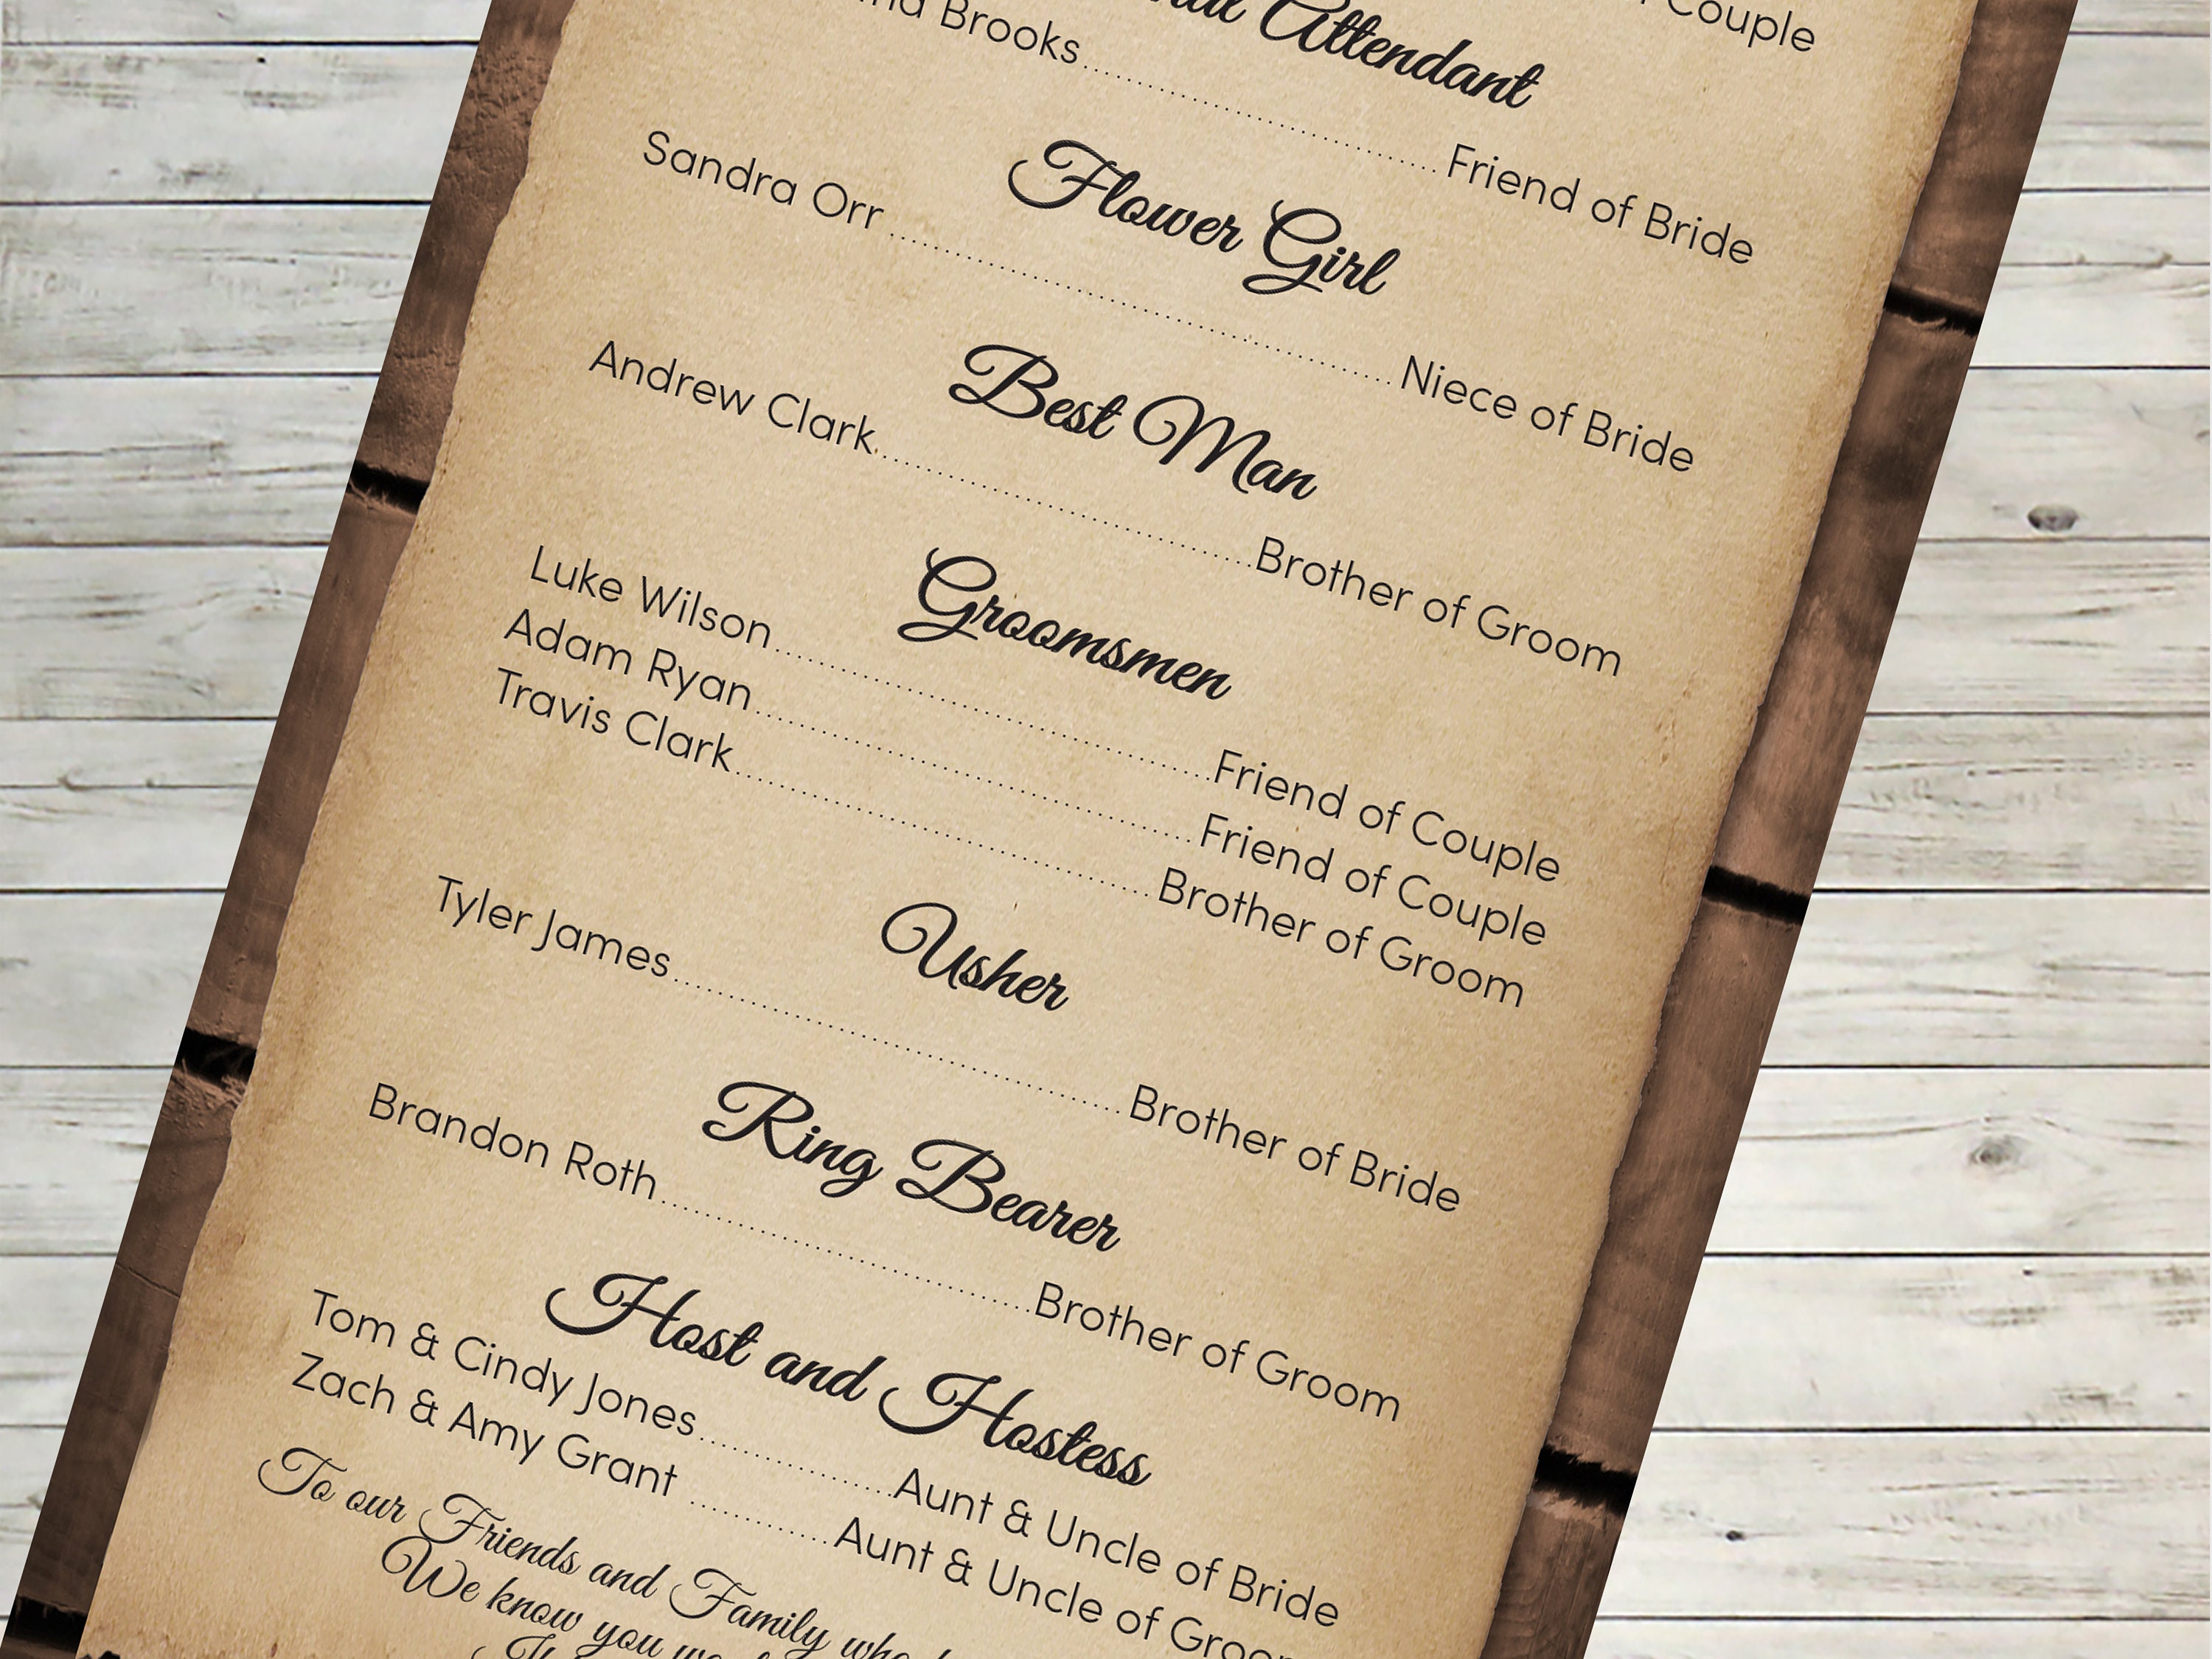 Couple
Attendant
Brooks Friend of Bride
Flower Girl
Sandra Orr Niece of Bride
Best Man
Andrew Clark Brother of Groom
Groomsmen
Luke Wilson Friend of Couple
Adam Ryan Friend of Couple
Travis Clark Brother of Groom
Usher
Tyler James Brother of Bride
Ring Bearer
Brandon Roth Brother of Groom
Host and Hostess
Tom & Cindy Jones Aunt & Uncle of Bride
Zach & Amy Grant Aunt & Uncle of
To our Friends and Family
We know you